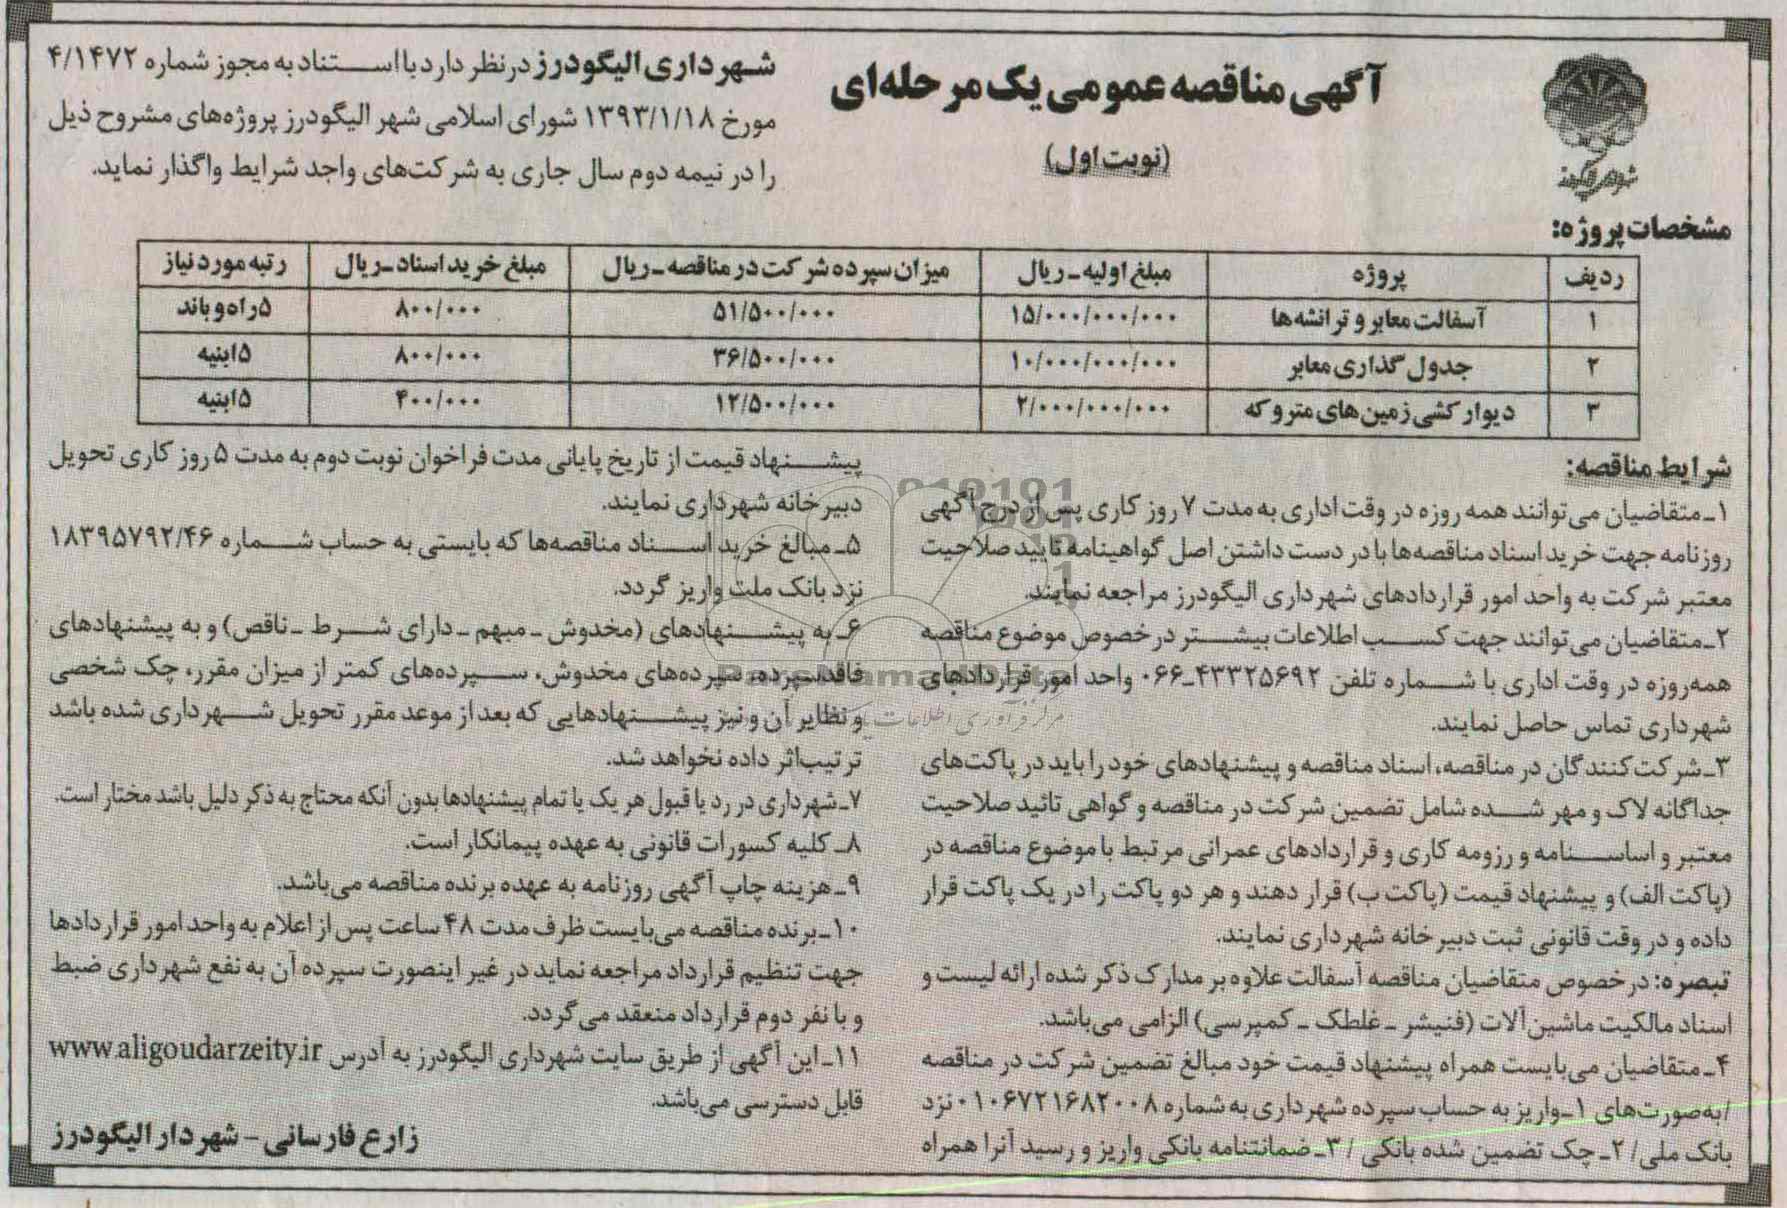 آگهی مناقصه عمومی یک مرحله‌ای
(نوبت اول)
شهرداری الیگودرز در نظر دارد با استناد به مجوز شماره ۴/۱۴۷۲
مورخ ۱۳۹۳/۱/۱۸ شورای اسلامی شهر الیگودرز پروژه‌های مشروح ذیل
را در نیمه دوم سال جاری به شرکت‌های واجد شرایط واگذار نماید.
مشخصات پروژه:
ردیف پروژه مبلغ اولیه ـ ریال میزان سپرده شرکت در مناقصه ـ ریال مبلغ خرید اسناد ـ ریال رتبه مورد نیاز
۱ آسفالت معابر و ترانشه‌ها ۱۵/۰۰۰/۰۰۰/۰۰۰ ۵۱/۵۰۰/۰۰۰ ۸۰۰/۰۰۰ ۵ راه و باند
۲ جدول گذاری معابر ۱۰/۰۰۰/۰۰۰/۰۰۰ ۳۶/۵۰۰/۰۰۰ ۸۰۰/۰۰۰ ۵ ابنیه
۳ دیوارکشی زمین‌های متروکه ۲/۰۰۰/۰۰۰/۰۰۰ ۱۲/۵۰۰/۰۰۰ ۴۰۰/۰۰۰ ۵ ابنیه
شرایط مناقصه:
۱ـ متقاضیان می‌توانند همه روزه در وقت اداری به مدت ۷ روز کاری پس از درج آگهی
روزنامه جهت خرید اسناد مناقصه‌ها با در دست داشتن اصل گواهینامه تایید صلاحیت
معتبر شرکت به واحد امور قراردادهای شهرداری الیگودرز مراجعه نمایند.
۲ـ متقاضیان می‌توانند جهت کسب اطلاعات بیشتر در خصوص موضوع مناقصه
همه‌روزه در وقت اداری با شماره تلفن ۴۳۳۲۵۶۹۲ـ۰۶۶ واحد امور قراردادهای
شهرداری تماس حاصل نمایند.
۳ـ شرکت‌کنندگان در مناقصه، اسناد مناقصه و پیشنهادهای خود را باید در پاکت‌های
جداگانه لاک و مهر شده شامل تضمین شرکت در مناقصه و گواهی تائید صلاحیت
معتبر و اساسنامه و رزومه کاری و قراردادهای عمرانی مرتبط با موضوع مناقصه در
(پاکت الف) و پیشنهاد قیمت (پاکت ب) قرار دهند و هر دو پاکت را در یک پاکت قرار
داده و در وقت قانونی ثبت دبیرخانه شهرداری نمایند.
تبصره: در خصوص متقاضیان مناقصه آسفالت علاوه بر مدارک ذکر شده ارائه لیست و
اسناد مالکیت ماشین‌آلات (فنیشر ـ غلطک ـ کمپرسی) الزامی می‌باشد.
۴ـ متقاضیان می‌بایست همراه پیشنهاد قیمت خود مبالغ تضمین شرکت در مناقصه
/به‌صورت‌های ۱ـ واریز به حساب سپرده شهرداری به شماره ۰۱۰۶۷۲۱۶۸۲۰۰۸ نزد
بانک ملی/ ۲ـ چک تضمین شده بانکی / ۳ـ ضمانتنامه بانکی واریز و رسید آنرا همراه
پیشنهاد قیمت از تاریخ پایانی مدت فراخوان نوبت دوم به مدت ۵ روز کاری تحویل
دبیرخانه شهرداری نمایند.
۵ـ مبالغ خرید اسناد مناقصه‌ها که بایستی به حساب شماره ۱۸۳۹۵۷۹۲/۴۶
نزد بانک ملت واریز گردد.
۶ـ به پیشنهادهای (مخدوش ـ مبهم ـ دارای شرط ـ ناقص) و به پیشنهادهای
فاقد سپرده، سپرده‌های مخدوش، سپرده‌های کمتر از میزان مقرر، چک شخصی
و نظایر آن و نیز پیشنهادهایی که بعد از موعد مقرر تحویل شهرداری شده باشد
ترتیب‌اثر داده نخواهد شد.
۷ـ شهرداری در رد یا قبول هر یک یا تمام پیشنهادها بدون آنکه محتاج به ذکر دلیل باشد مختار است.
۸ـ کلیه کسورات قانونی به عهده پیمانکار است.
۹ـ هزینه چاپ آگهی روزنامه به عهده برنده مناقصه می‌باشد.
۱۰ـ برنده مناقصه می‌بایست ظرف مدت ۴۸ ساعت پس از اعلام به واحد امور قراردادها
جهت تنظیم قرارداد مراجعه نماید در غیر اینصورت سپرده آن به نفع شهرداری ضبط
و با نفر دوم قرارداد منعقد می‌گردد.
۱۱ـ این آگهی از طریق سایت شهرداری الیگودرز به آدرس www.aligoudarzeity.ir
قابل دسترسی می‌باشد.
زارع فارسانی - شهردار الیگودرز